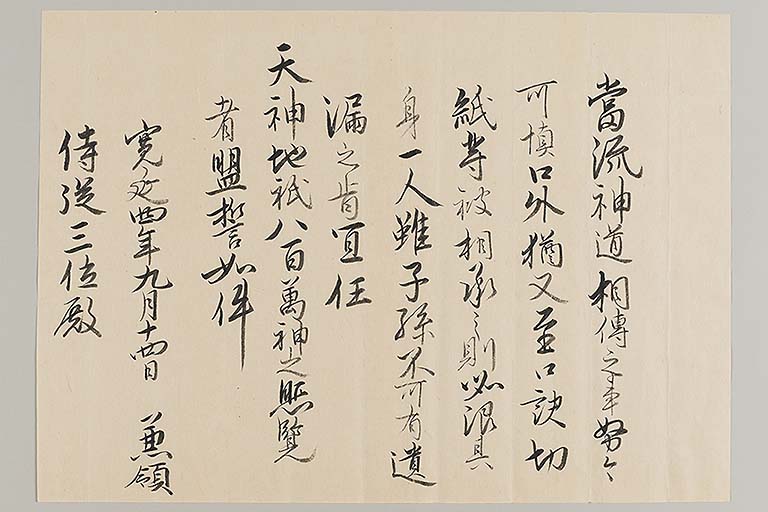 當流神道相傳之事努々
可慎口外猶又至口訣切
紙等被相承之則必限其
身一人雖子孫不可有遺
漏之旨宜任
天神地祇八百萬神之照覧
者盟誓如件
寛延四年九月十四日 兼領
侍従三位殿